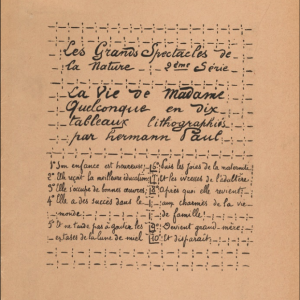 Les Grands Spectacles de
la Nature 2ème Série
La Vie de Madame
Quelconque en dix
tableaux lithographiés
par hermann Paul.
1° Son enfance est heureuse;
2° Elle reçoit la meilleure éducation;
3° Elle s'occupe de bonnes œuvres;
4° Elle a des succès dans le
monde:
5° Et ne tarde pas à goûter les
extases de la lune de miel
6° Puis les joies de la maternité
7° Et les ivresses de l'adultère.
8° Après quoi elle revient
aux charmes de la vie
de famille!
9° Devient grand-mère:
10° Et disparait.